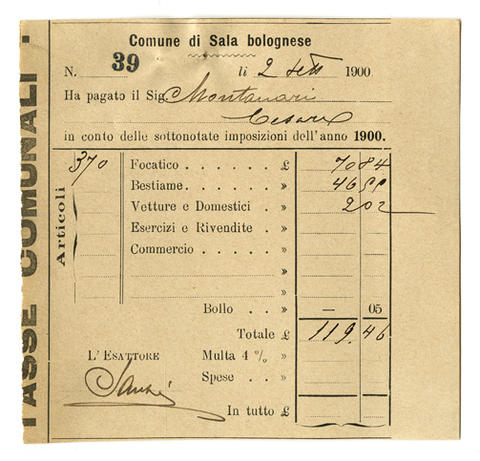 TASSE COMUNALI
Comune di Sala bolognese
N. 39 lì 2 sett 1900
Ha pagato il Sig. Montanari
Cesare
in conto delle sottonotate imposizioni dell'anno 1900.
Articoli
370 Focatico . . . . . . £ 70 84
Bestiame. . . . . . » 46
Vetture e Domestici . » 2 02
Esercizi e Rivendite . »
Commercio . . . . . »
»
»
Bollo . . » — 05
Totale £ 119.46
L'ESATTORE Multa 4 % »
Spese . . »
In tutto £